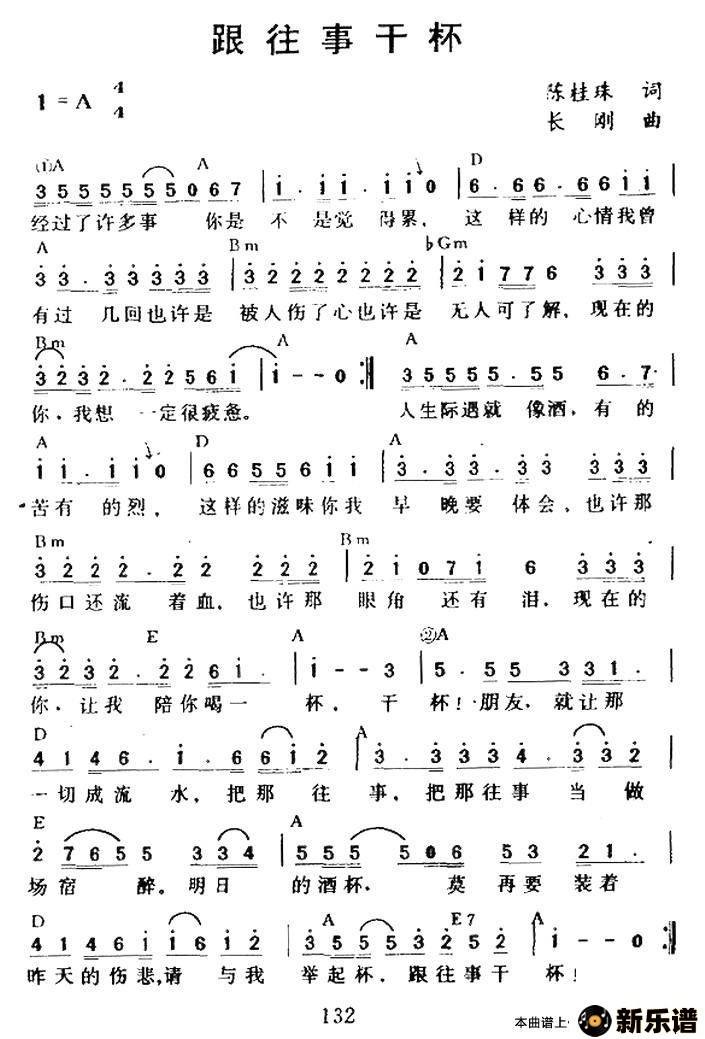 跟往事干杯
1=A 4/4
陈桂珠 词
长刚 曲
(1)A A D
3 5 5 5 5 5 5 5 0 6 7 | 1 · 1 1 · 1 1 0 | 6 · 6 6 · 6 6 1 1 |
经过了许多事 你是不是觉得累, 这样的心情我曾
A Bm ♭Gm
3 3 · 3 3 3 3 3 | 3 2 2 2 2 2 2 2 | 2 1 7 7 6 3 3 3 |
有过 几回也许是 被人伤了心也许是 无人可了解, 现在的
Bm A A
3 2 3 2 · 2 2 5 6 1 | 1 - - 0 :| 3 5 5 5 5 · 5 5 6 · 7 ·
你,我想 一定很疲惫。 人生际遇就 像酒,有的
A D A
1 1 · 1 1 0 | 6 6 5 5 6 1 1 | 3 · 3 3 · 3 3 3 3 |
苦有 的烈, 这样的滋味你我 早 晚要 体会,也许那
Bm Bm
3 2 2 2 · 2 2 2 2 2 | 2 1 0 7 1 6 3 3 3 |
伤口还流 着血,也许那 眼角 还有 泪,现在的
Bm E A (2)A
3 2 3 2 · 2 2 6 1 · | 1 - - 3 | 5 · 5 5 3 3 1 · |
你,让我 陪你喝一 杯, 干 杯!朋友,就让那
D A
4 1 4 6 · 1 · 6 6 1 2 | 3 · 3 3 3 4 · 3 3 2 |
一切成流 水,把那 往 事,把那往事 当 做
E A
2 7 6 5 5 3 3 4 | 5 5 5 5 0 6 5 3 2 1 · |
一场宿 醉。明日 的酒杯, 莫 再要 装着
D A E7 A
4 1 4 6 1 1 6 1 2 | 3 5 5 5 3 2 5 2 | 1 - - 0 :|
昨天的伤悲,请 与我 举起杯, 跟往事干 杯!
132
本曲谱上·新乐谱